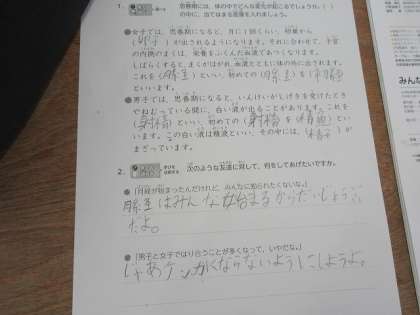 1.
思春期には、体の中でどんな変化が起こるでしょうか。(
)の中に、当てはまる言葉を入れましょう。
●女子では、思春期になると、月に1回くらい、卵巣から
(卵子)が出されるようになります。それに合わせて、子宮
の内側のまくは、栄養をふくんだ血液であつくなります。
しばらくすると、まくがはがれ、血液とともに体の外に出されます。
これを(月経)といい、初めての(月経)を(初経)
といいます。
●男子では、思春期になると、いんけいがしげきを受けたとき
やねむっている間に、白い液が出ることがあります。これを
(射精)といい、初めての(射精)を(精通)とい
います。この白い液は精液といい、その中には、(精子)が
まざっています。
2.
次のような友達に対して、何をしてあげたいですか。
●「月経が始まったんだけれど、みんなに知られたくないな。」
月経はみんな始まるからだいじょうぶ
だよ。
●「男子と女子ではり合うことが多くなって、いやだな。」
じゃあケンカにならないようにしようよ。
みん